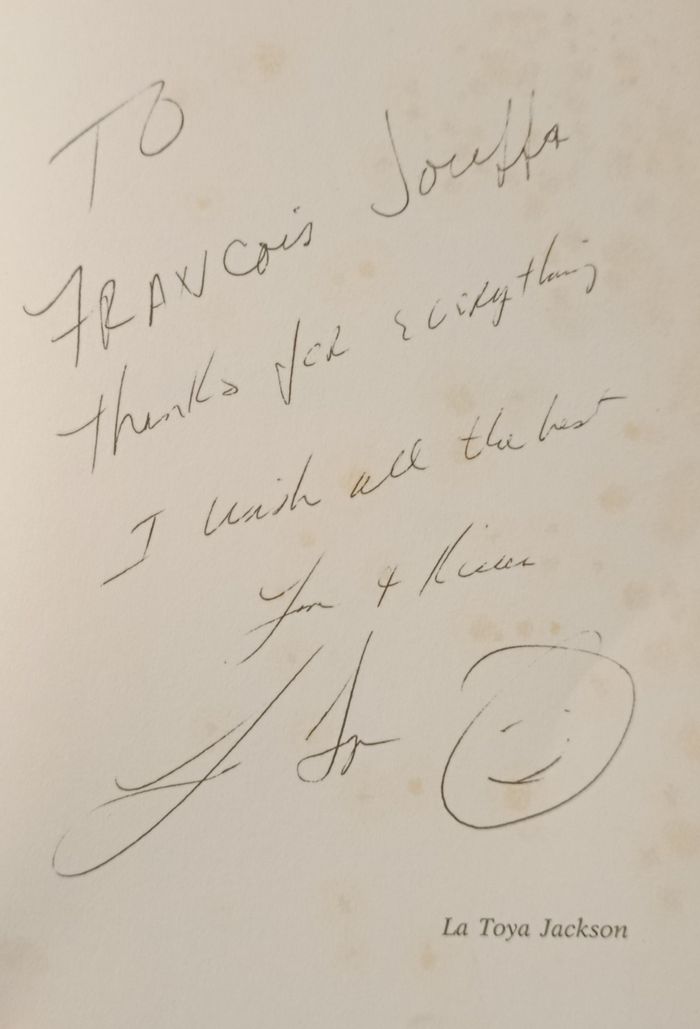 TO
FRANCOis Jouffa
Thanks for everything
I wish all the best
Love + Kisses
La Toya
La Toya Jackson